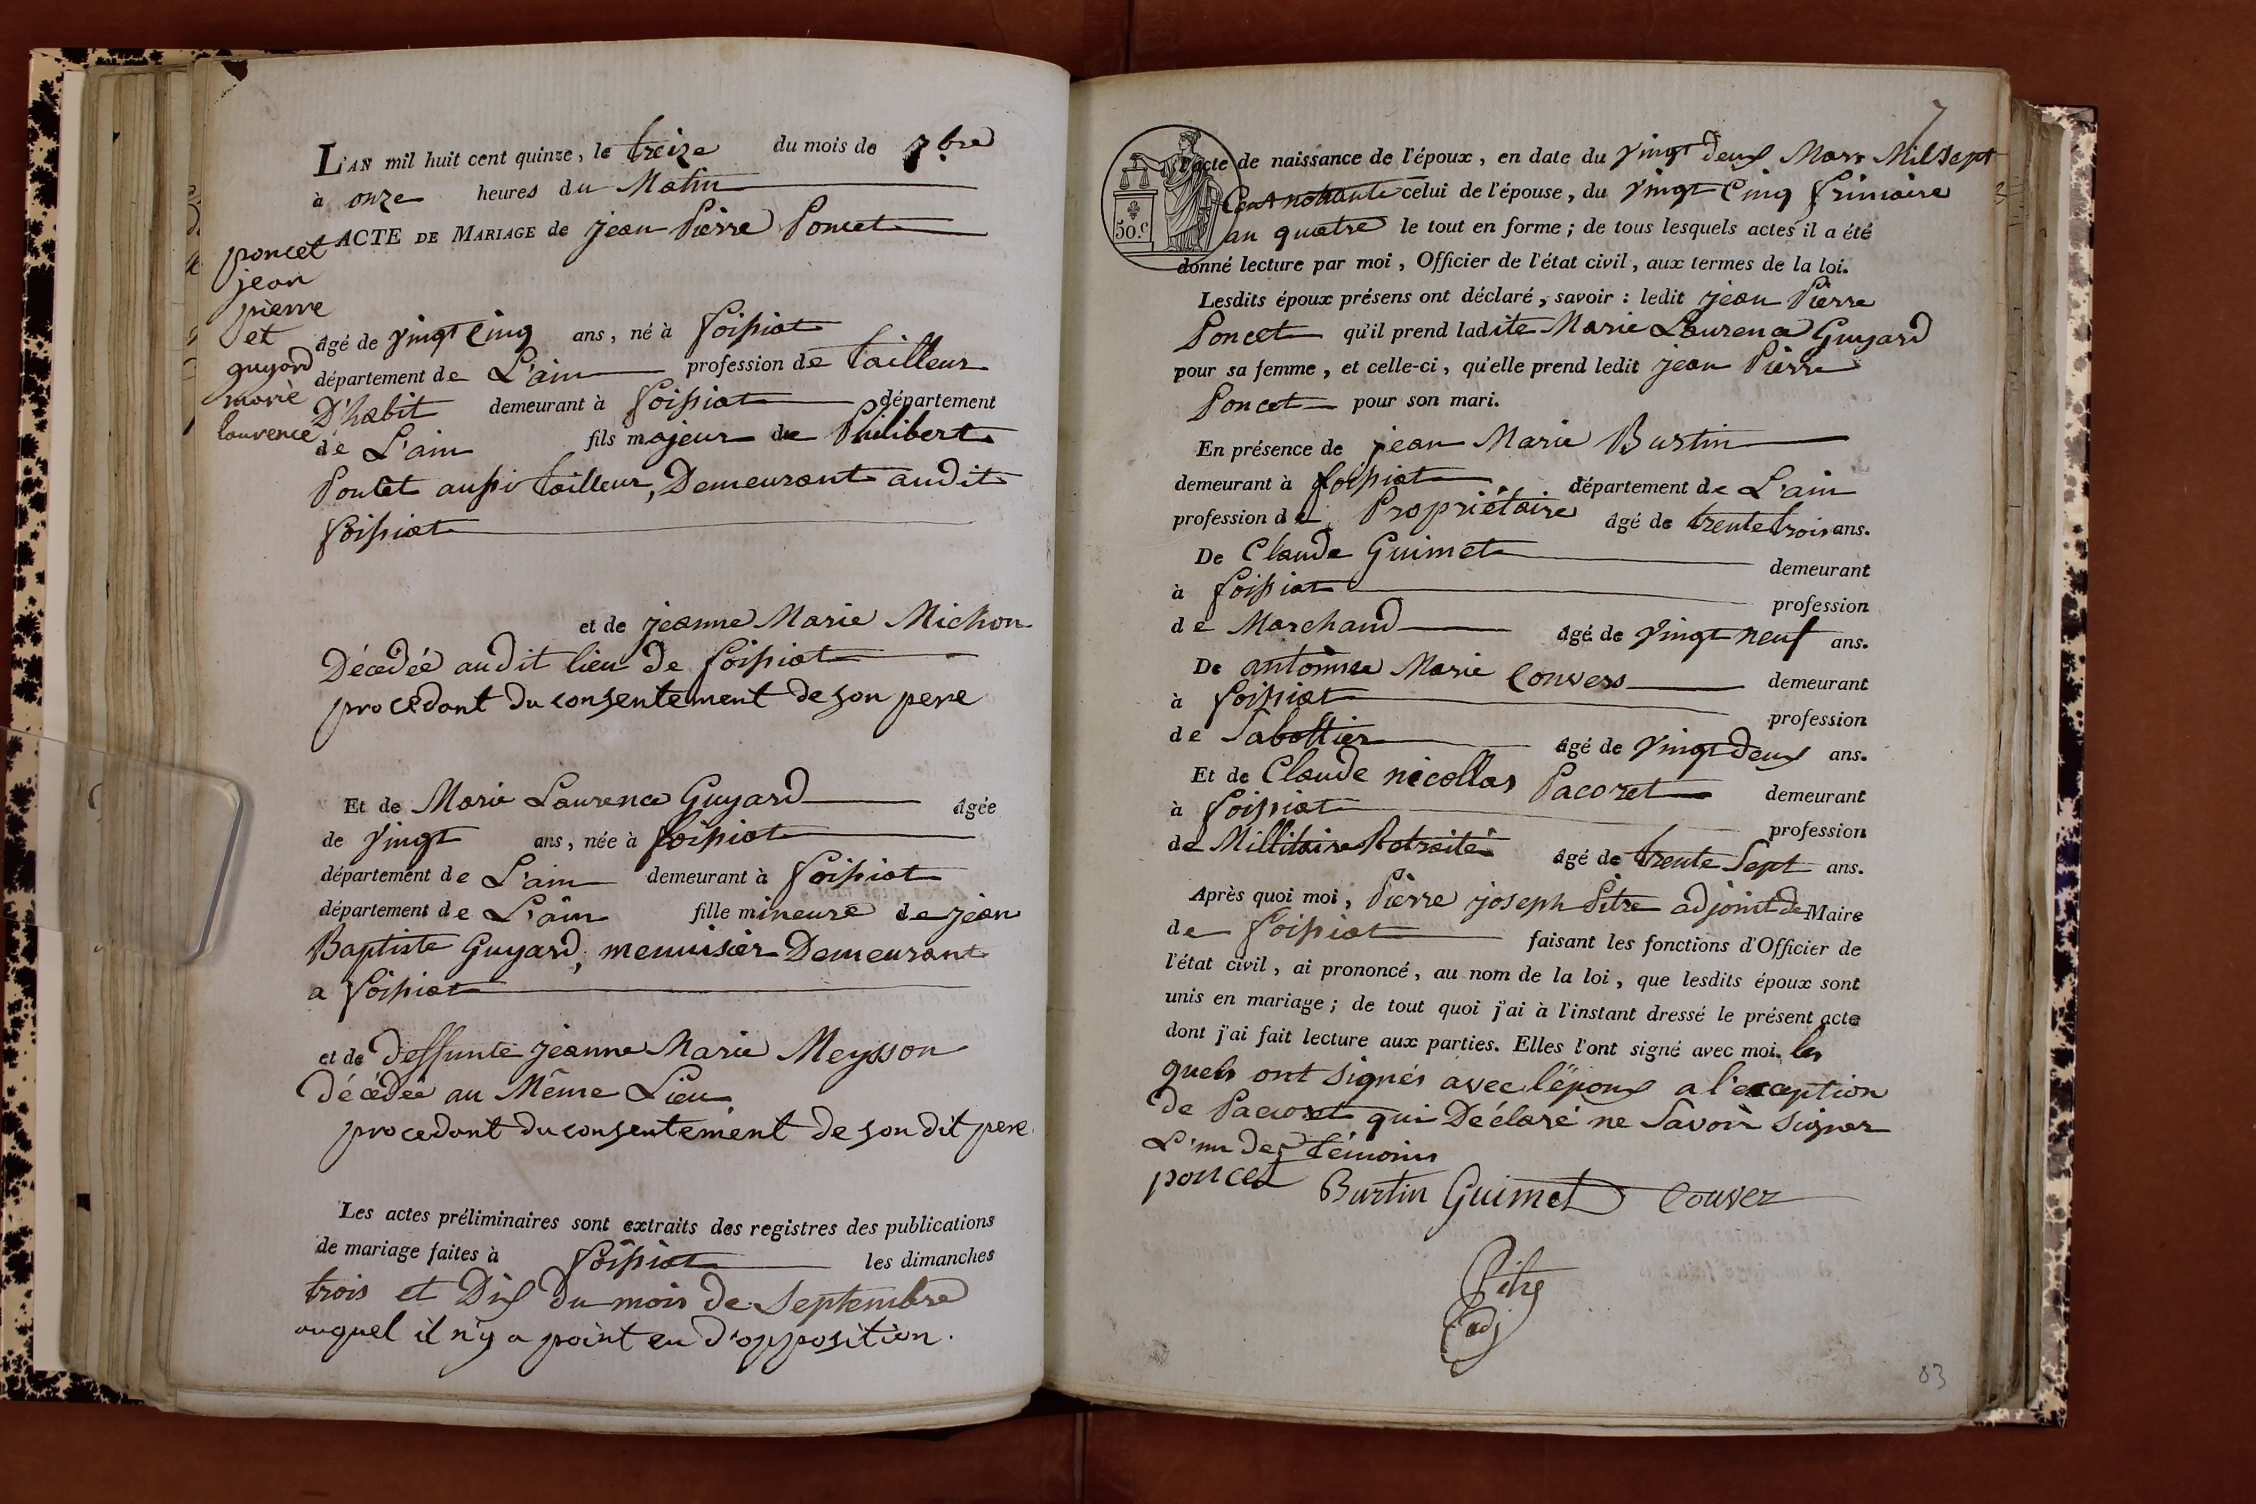 L'AN mil huit cent quinze, le treize du mois de 7bre
à onze heures du Matin
ACTE DE MARIAGE de jean Pierre Poncet
poncet
jean
pierre
et
guyard
marie
laurence
âgé de vingt Cinq ans, né à foissiat
département de L'ain profession de tailleur
D'habit demeurant à foissiat département
de L'ain fils majeur de Philibert
Poncet aussi tailleur, Demeurant audit
foissiat
et de jeanne Marie Michon
Décédée audit lieu de foissiat
procedant du consentement de son pere
Et de Marie Laurence Guyard âgée
de vingt ans, née à foissiat
département de L'ain demeurant à foissiat
département de L'ain fille mineure de jean
Baptiste Guyard, menuisier Demeurant
a foissiat
et de deffunte jeanne Marie Meysson
décédée au Même Lieu
procedant du consentement de son dit pere.
Les actes préliminaires sont extraits des registres des publications
de mariage faites à foissiat les dimanches
trois et Dix du mois de Septembre
auquel il n'y a point eu d'opposition.
7
l'acte de naissance de l'époux, en date du vingt deux Mars Mil Sept
Cent nonante celui de l'épouse, du vingt Cinq frimaire
50.c an quatre le tout en forme; de tous lesquels actes il a été
donné lecture par moi, Officier de l'état civil, aux termes de la loi.
Lesdits époux présens ont déclaré, savoir : ledit jean Pierre
Poncet qu'il prend ladite Marie Laurence Guyard
pour sa femme, et celle-ci, qu'elle prend ledit jean Pierre
Poncet pour son mari.
En présence de jean Marie Burtin
demeurant à foissiat département de L'ain
profession de Propriétaire âgé de trente trois ans.
De Claude Guimet demeurant
à foissiat profession
de Marchand âgé de vingt neuf ans.
De antoinne Marie Convers demeurant
à foissiat profession
de Sabottier âgé de vingt deux ans.
Et de Claude nicollas Pacoret demeurant
à foissiat profession
de Millitaire Retraité âgé de trente Sept ans.
Après quoi moi, Pierre joseph Pitre adjoint de Maire
de foissiat faisant les fonctions d'Officier de
l'état civil, ai prononcé, au nom de la loi, que lesdits époux sont
unis en mariage; de tout quoi j'ai à l'instant dressé le présent acte
dont j'ai fait lecture aux parties. Elles l'ont signé avec moi. les
quels ont signés avec l'époux a l'exception
de Pacoret qui Déclaré ne Savoir signer
L'un des témoins
poncet Burtin Guimet Couver
Pitre
adj
83